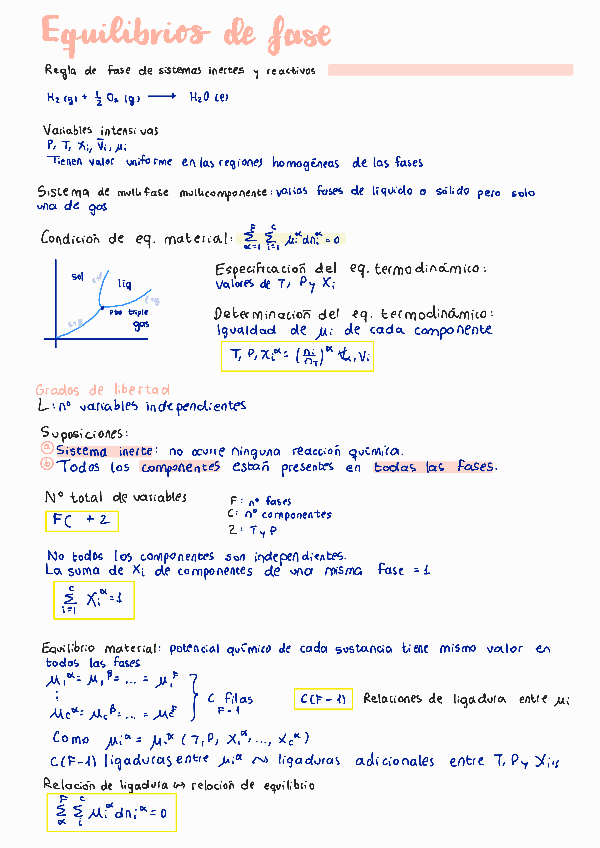 Equilibrios de fase
Regla de fase de sistemas inertes y reactivos
H₂(g) + ½ O₂(g) ⟶ H₂O(l)
Variables intensivas
P, T, Xi, V̄i, μi
Tienen valor uniforme en las regiones homogéneas de las fases
Sistema de multifase multicomponente: varias fases de líquido o sólido pero solo
una de gas
Condición de eq. material: Σ(α=1→F) Σ(i=1→C) μi^α dni^α = 0
sol
liq
pto triple
gas
s-g
Especificación del eq. termodinámico:
Valores de T, P y Xi
Determinación del eq. termodinámico:
Igualdad de μi de cada componente
T, P, Xi^α = (ni/nT)^α ∀α, ∀i
Grados de libertad
L: nº variables independientes
Suposiciones:
ⓐ Sistema inerte: no ocurre ninguna reacción química.
ⓑ Todos los componentes están presentes en todas las fases.
Nº total de variables
FC + 2
F: nº fases
C: nº componentes
2: T y P
No todos los componentes son independientes.
La suma de Xi de componentes de una misma fase = 1
Σ(i=1→C) Xi^α = 1
Equilibrio material: potencial químico de cada sustancia tiene mismo valor en
todas las fases
μ₁^α = μ₁^β = ... = μ₁^F
⋮
μc^α = μc^β = ... = μc^F
C filas
F-1
C(F-1) Relaciones de ligadura entre μi
Como μi^α = μi^α (T, P, X₁^α, ..., Xc^α)
C(F-1) ligaduras entre μi^α ⤳ ligaduras adicionales entre T, P y Xi,s
Relación de ligadura ↔ relación de equilibrio
Σ(α→F) Σ(i→C) μi^α dni^α = 0